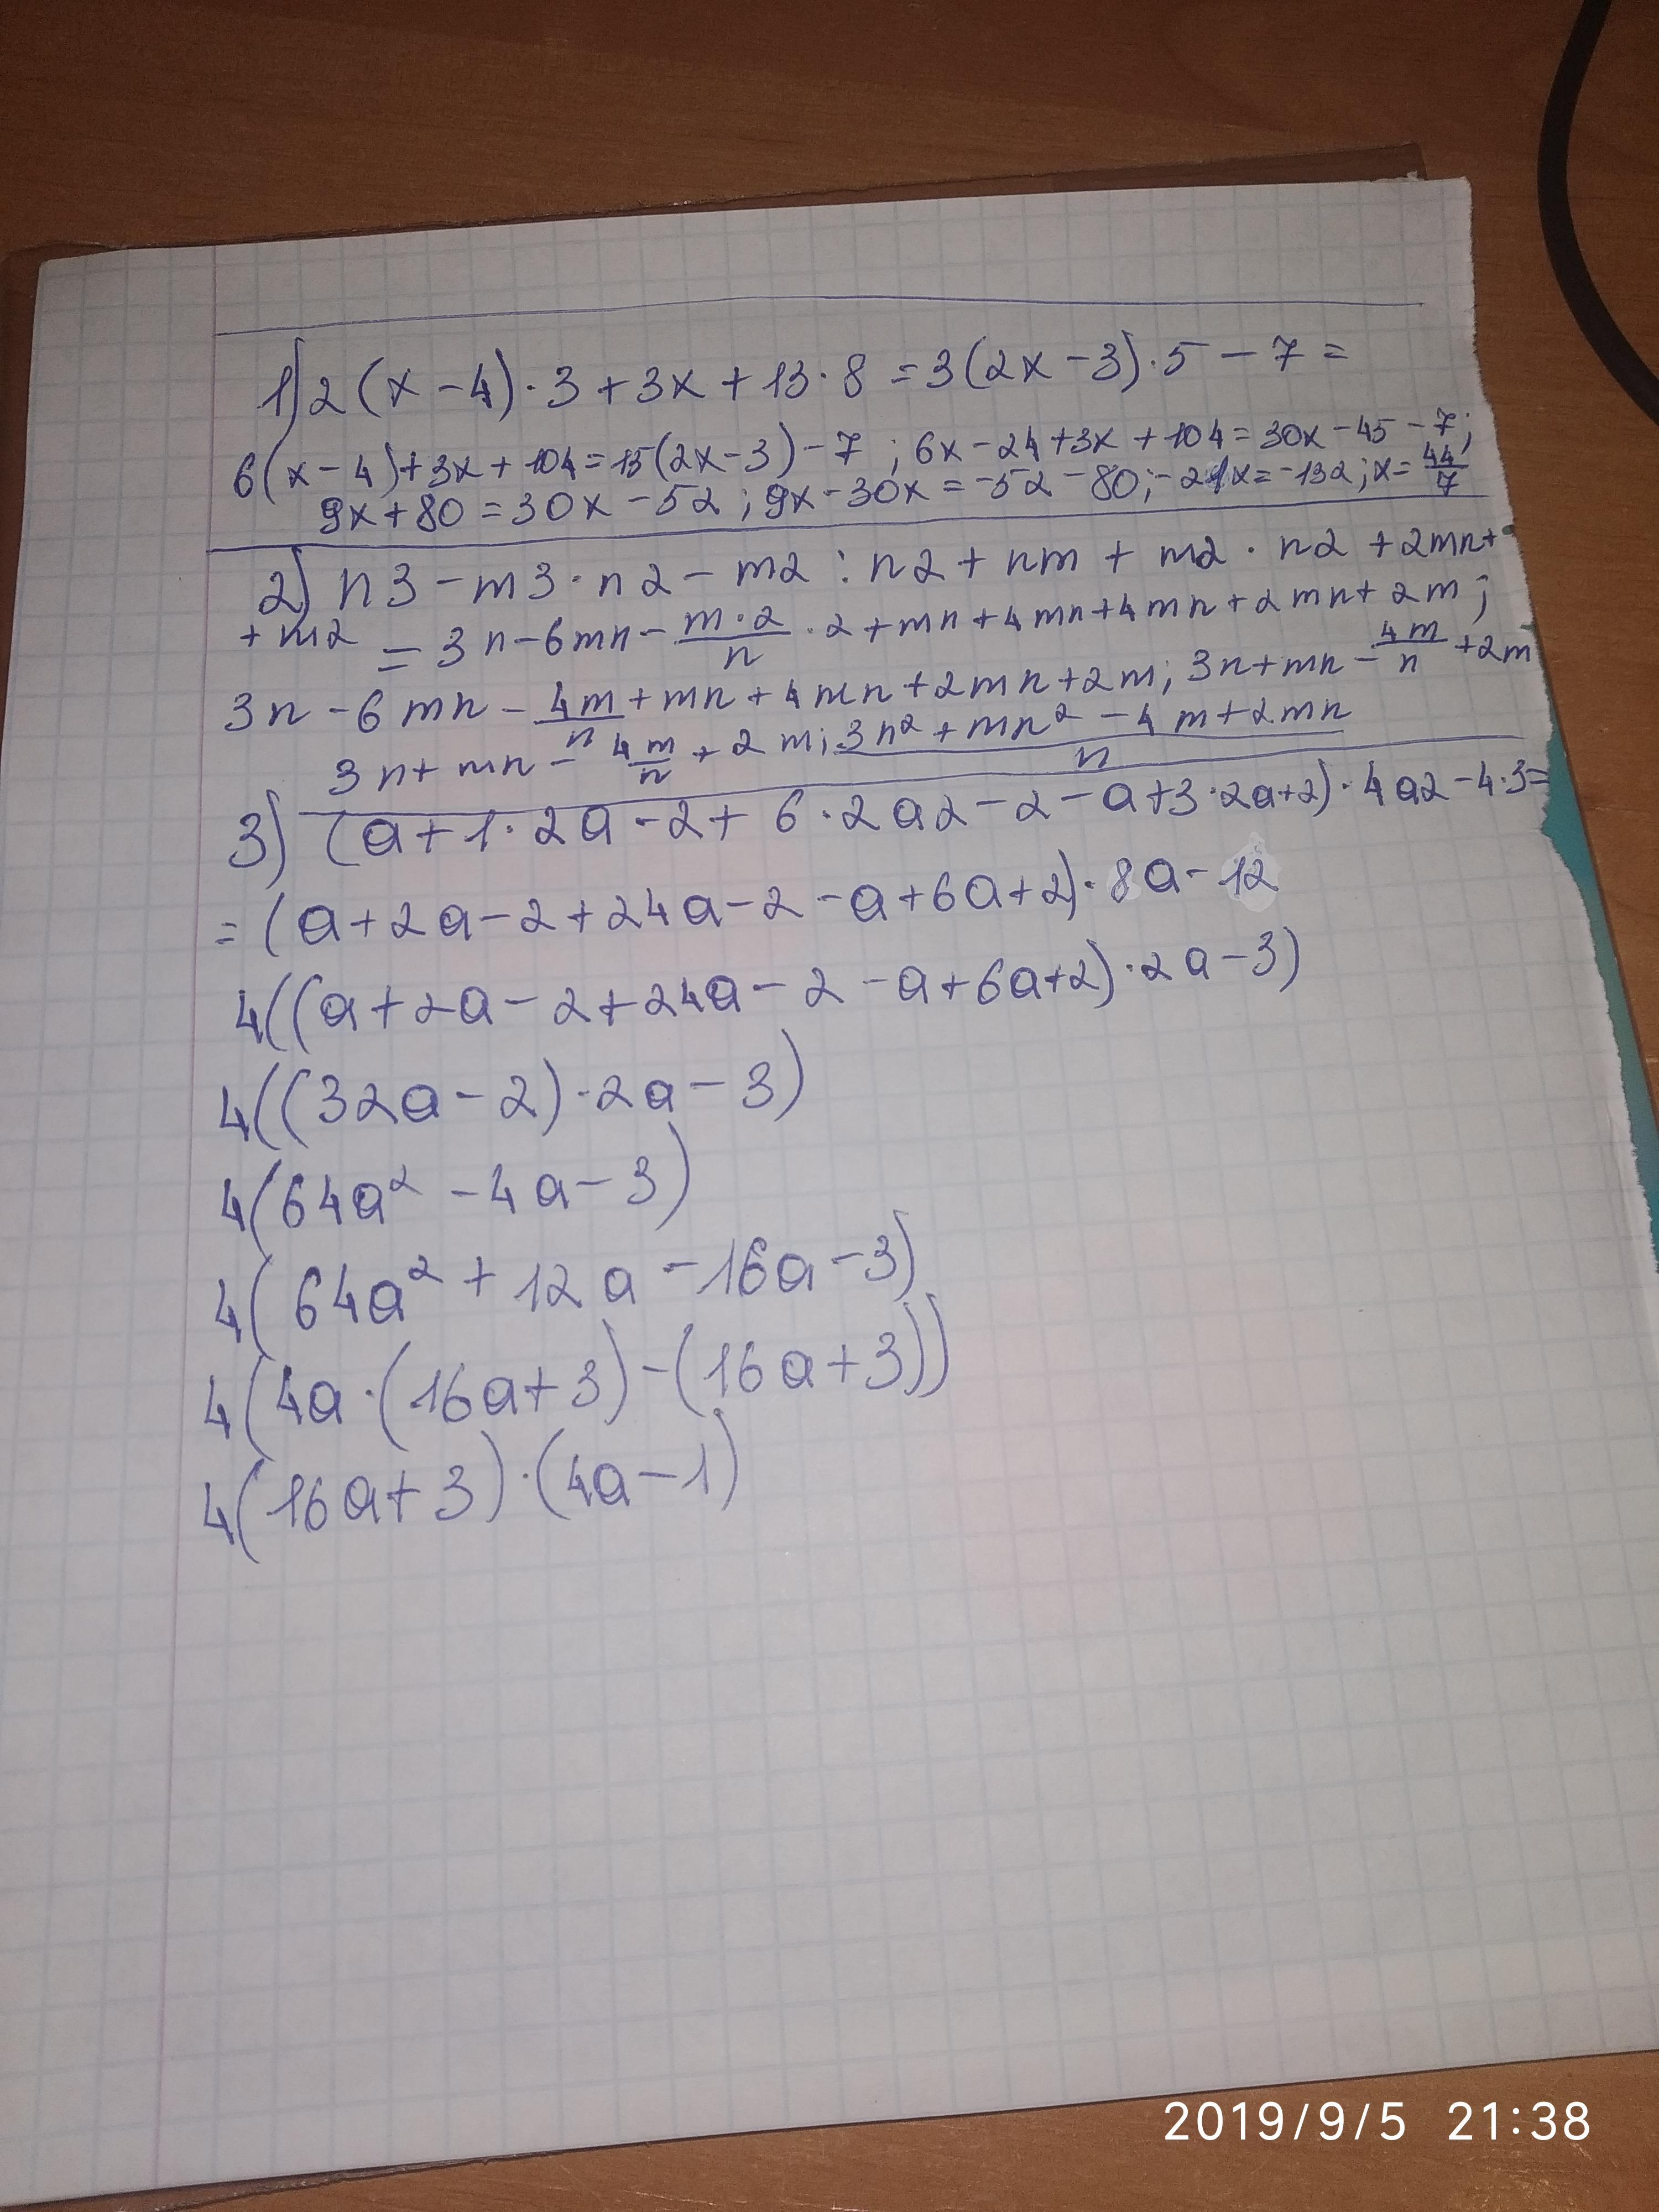 1) 2(x-4)·3+3x+13·8=3(2x-3)·5-7=
6(x-4)+3x+104=15(2x-3)-7; 6x-24+3x+104=30x-45-7;
9x+80=30x-52; 9x-30x=-52-80; -21x=-132; x=44/7
2) n3-m3·n2-m2:n2+nm+m2·n2+2mn+
+m2=3n-6mn-m·2/n·2+mn+4mn+4mn+2mn+2m;
3n-6mn-4m/n+mn+4mn+2mn+2m; 3n+mn-4m/n+2m
3n+mn-4m/n+2m; 3n²+mn²-4m+2mn/n
3) (a+1·2a-2+6·2a2-2-a+3·2a+2)·4a2-4·3=
=(a+2a-2+24a-2-a+6a+2)·8a-12
4((a+2a-2+24a-2-a+6a+2)·2a-3)
4((32a-2)·2a-3)
4(64a²-4a-3)
4(64a²+12a-16a-3)
4(4a·(16a+3)-(16a+3))
4(16a+3)·(4a-1)
2019/9/5 21:38